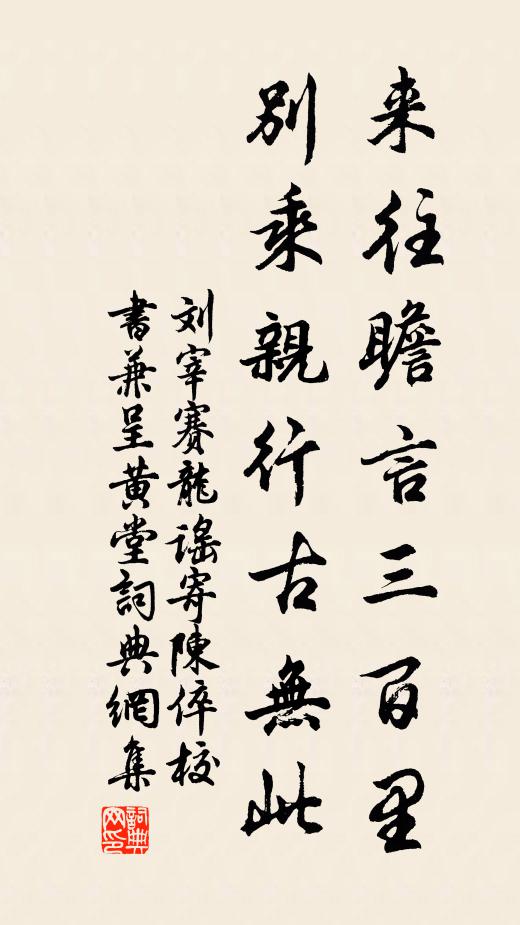 来往瞻言三百里
別乘親行古無此
刘宰賽龍謠寄陳倅校
書兼呈黄堂詞典網集
詞典
网印